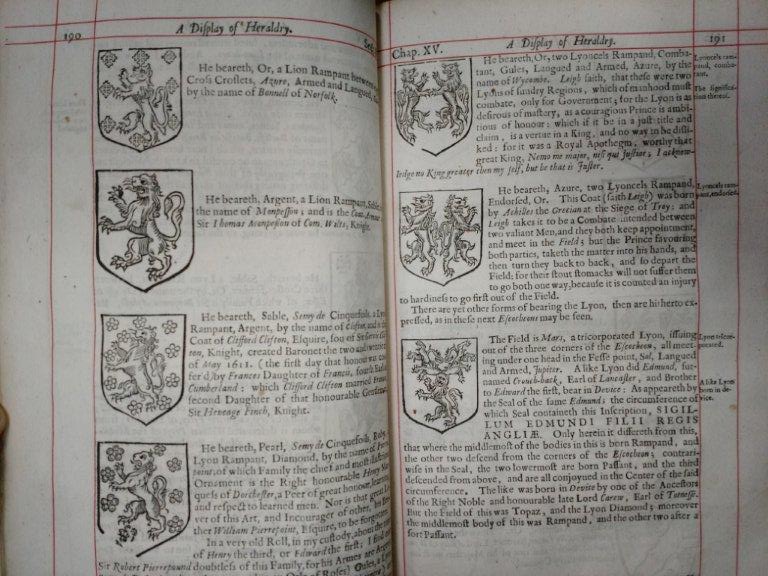 190
A Display of Heraldry.
He beareth, Or, a Lion Rampant between
Cross Croslets, Azure, Armed and Langued,
by the name of Bonnell of Norfolk.
He beareth, Argent, a Lion Rampant, Sable,
the name of Mompesson; and is the Coat-Armour
Sir Thomas Mompesson of Com. Wilts, Knight.
He beareth, Sable, Semy de Cinquefoils, a Lyon
Rampant, Argent, by the name of Clifton, and is
Coat of Clifford Clifton, Esquire, son of Sir
Knight, created Baronet the two and twentieth
of May 1611. (the first day that honour was
fer'd) by Frances Daughter of Francis, fourth Earl of
Cumberland: which Clifford Clifton married
second Daughter of that honourable
Sir Heneage Finch, Knight.
He beareth, Pearl, Semy de Cinquefoils, Ruby,
Lyon Rampant, Diamond, by the name of
point, of which Family the chief and most
Ornament is the Right honourable Henry
quess of Dorchester, a Peer of great honour,
and respect to learned men. Nor is that great
ver of this Art, and Incourager of other, his
ther William Pierrepoint, Esquire, to be forgotten.
In a very old Roll, in my custody, about the
of Henry the third, or Edward the first; I find
Sir Robert Pierrepound doubtless of this Family, for his Armes are
Chap. XV.
A Display of Heraldry.
191
He beareth, Or, two Lyoncels Rampand, Comba-
tant, Gules, Langued and Armed, Azure, by the
name of Wycombe. Leigh saith, that these were two
Lyons of sundry Regions, which of manhood must
combate, only for Government; for the Lyon is as
desirous of mastery, as a couragious Prince is ambi-
tious of honour: which if it be in a just title and
claim, is a vertue in a King, and no way to be disli-
ked: for it was a Royal Apothegm, worthy that
great King, Nemo me major, nisi qui justior; I acknow-
ledge no King greater then my self, but he that is Juster.
Lyoncels ram-
pand, comba-
tant.
The significa-
tion thereof.
He beareth, Azure, two Lyoncels Rampand,
Endorsed, Or. This Coat (saith Leigh) was born
by Achilles the Grecian at the Siege of Troy: and
Leigh takes it to be a Combate intended between
two valiant Men, and they both keep appointment,
and meet in the Field; but the Prince favouring
both parties, taketh the matter into his hands, and
then turn they back to back, and so depart the
Field: for their stout stomacks will not suffer them
to go both one way, because it is counted an injury
to hardiness to go first out of the Field.
Lyoncels ram-
pant, endorsed.
There are yet other forms of bearing the Lyon, then are hitherto ex-
pressed, as in these next Escocheons may be seen.
The Field is Mars, a tricorporated Lyon, issuing
out of the three corners of the Escocheon, all meet-
ing under one head in the Fesse point, Sol, Langued
and Armed, Jupiter. A like Lyon did Edmund, sur-
named Crouch-back, Earl of Lancaster, and Brother
to Edward the first, bear in Device: As appeareth by
the Seal of the same Edmund; the circumference of
which Seal containeth this Inscription, SIGIL-
LUM EDMUNDI FILII REGIS
ANGLIÆ. Only herein it differeth from this,
that where the middlemost of the bodies in this is born Rampand, and
the other two descend from the corners of the Escocheon; contrari-
wise in the Seal, the two lowermost are born Passant, and the third
descended from above, and are all conjoyned in the Center of the said
circumference. The like was born in Device by one of the Ancestors
of the Right Noble and honourable late Lord Carew, Earl of Totnesse.
But the Field of this was Topaz, and the Lyon Diamond; moreover
the middlemost body of this was Rampand, and the other two after a
sort Passant.
Lyon tricor-
porated.
A like Lyon
born in de-
vice.